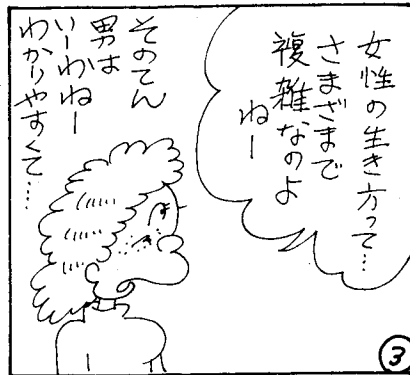 女性の生き方って…
さまざまで
複雑なのよ
ねー
そのてん
男は
いーわねー
わかりやすくて…
3